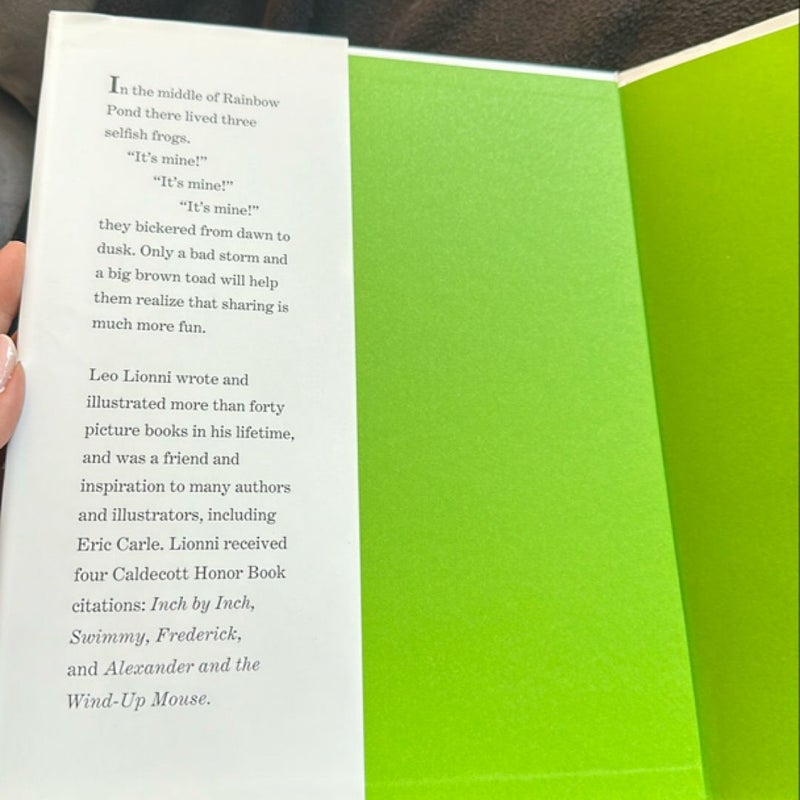 In the middle of Rainbow
Pond there lived three
selfish frogs.
“It’s mine!”
“It’s mine!”
“It’s mine!”
they bickered from dawn to
dusk. Only a bad storm and
a big brown toad will help
them realize that sharing is
much more fun.
Leo Lionni wrote and
illustrated more than forty
picture books in his lifetime,
and was a friend and
inspiration to many authors
and illustrators, including
Eric Carle. Lionni received
four Caldecott Honor Book
citations: Inch by Inch,
Swimmy, Frederick,
and Alexander and the
Wind-Up Mouse.